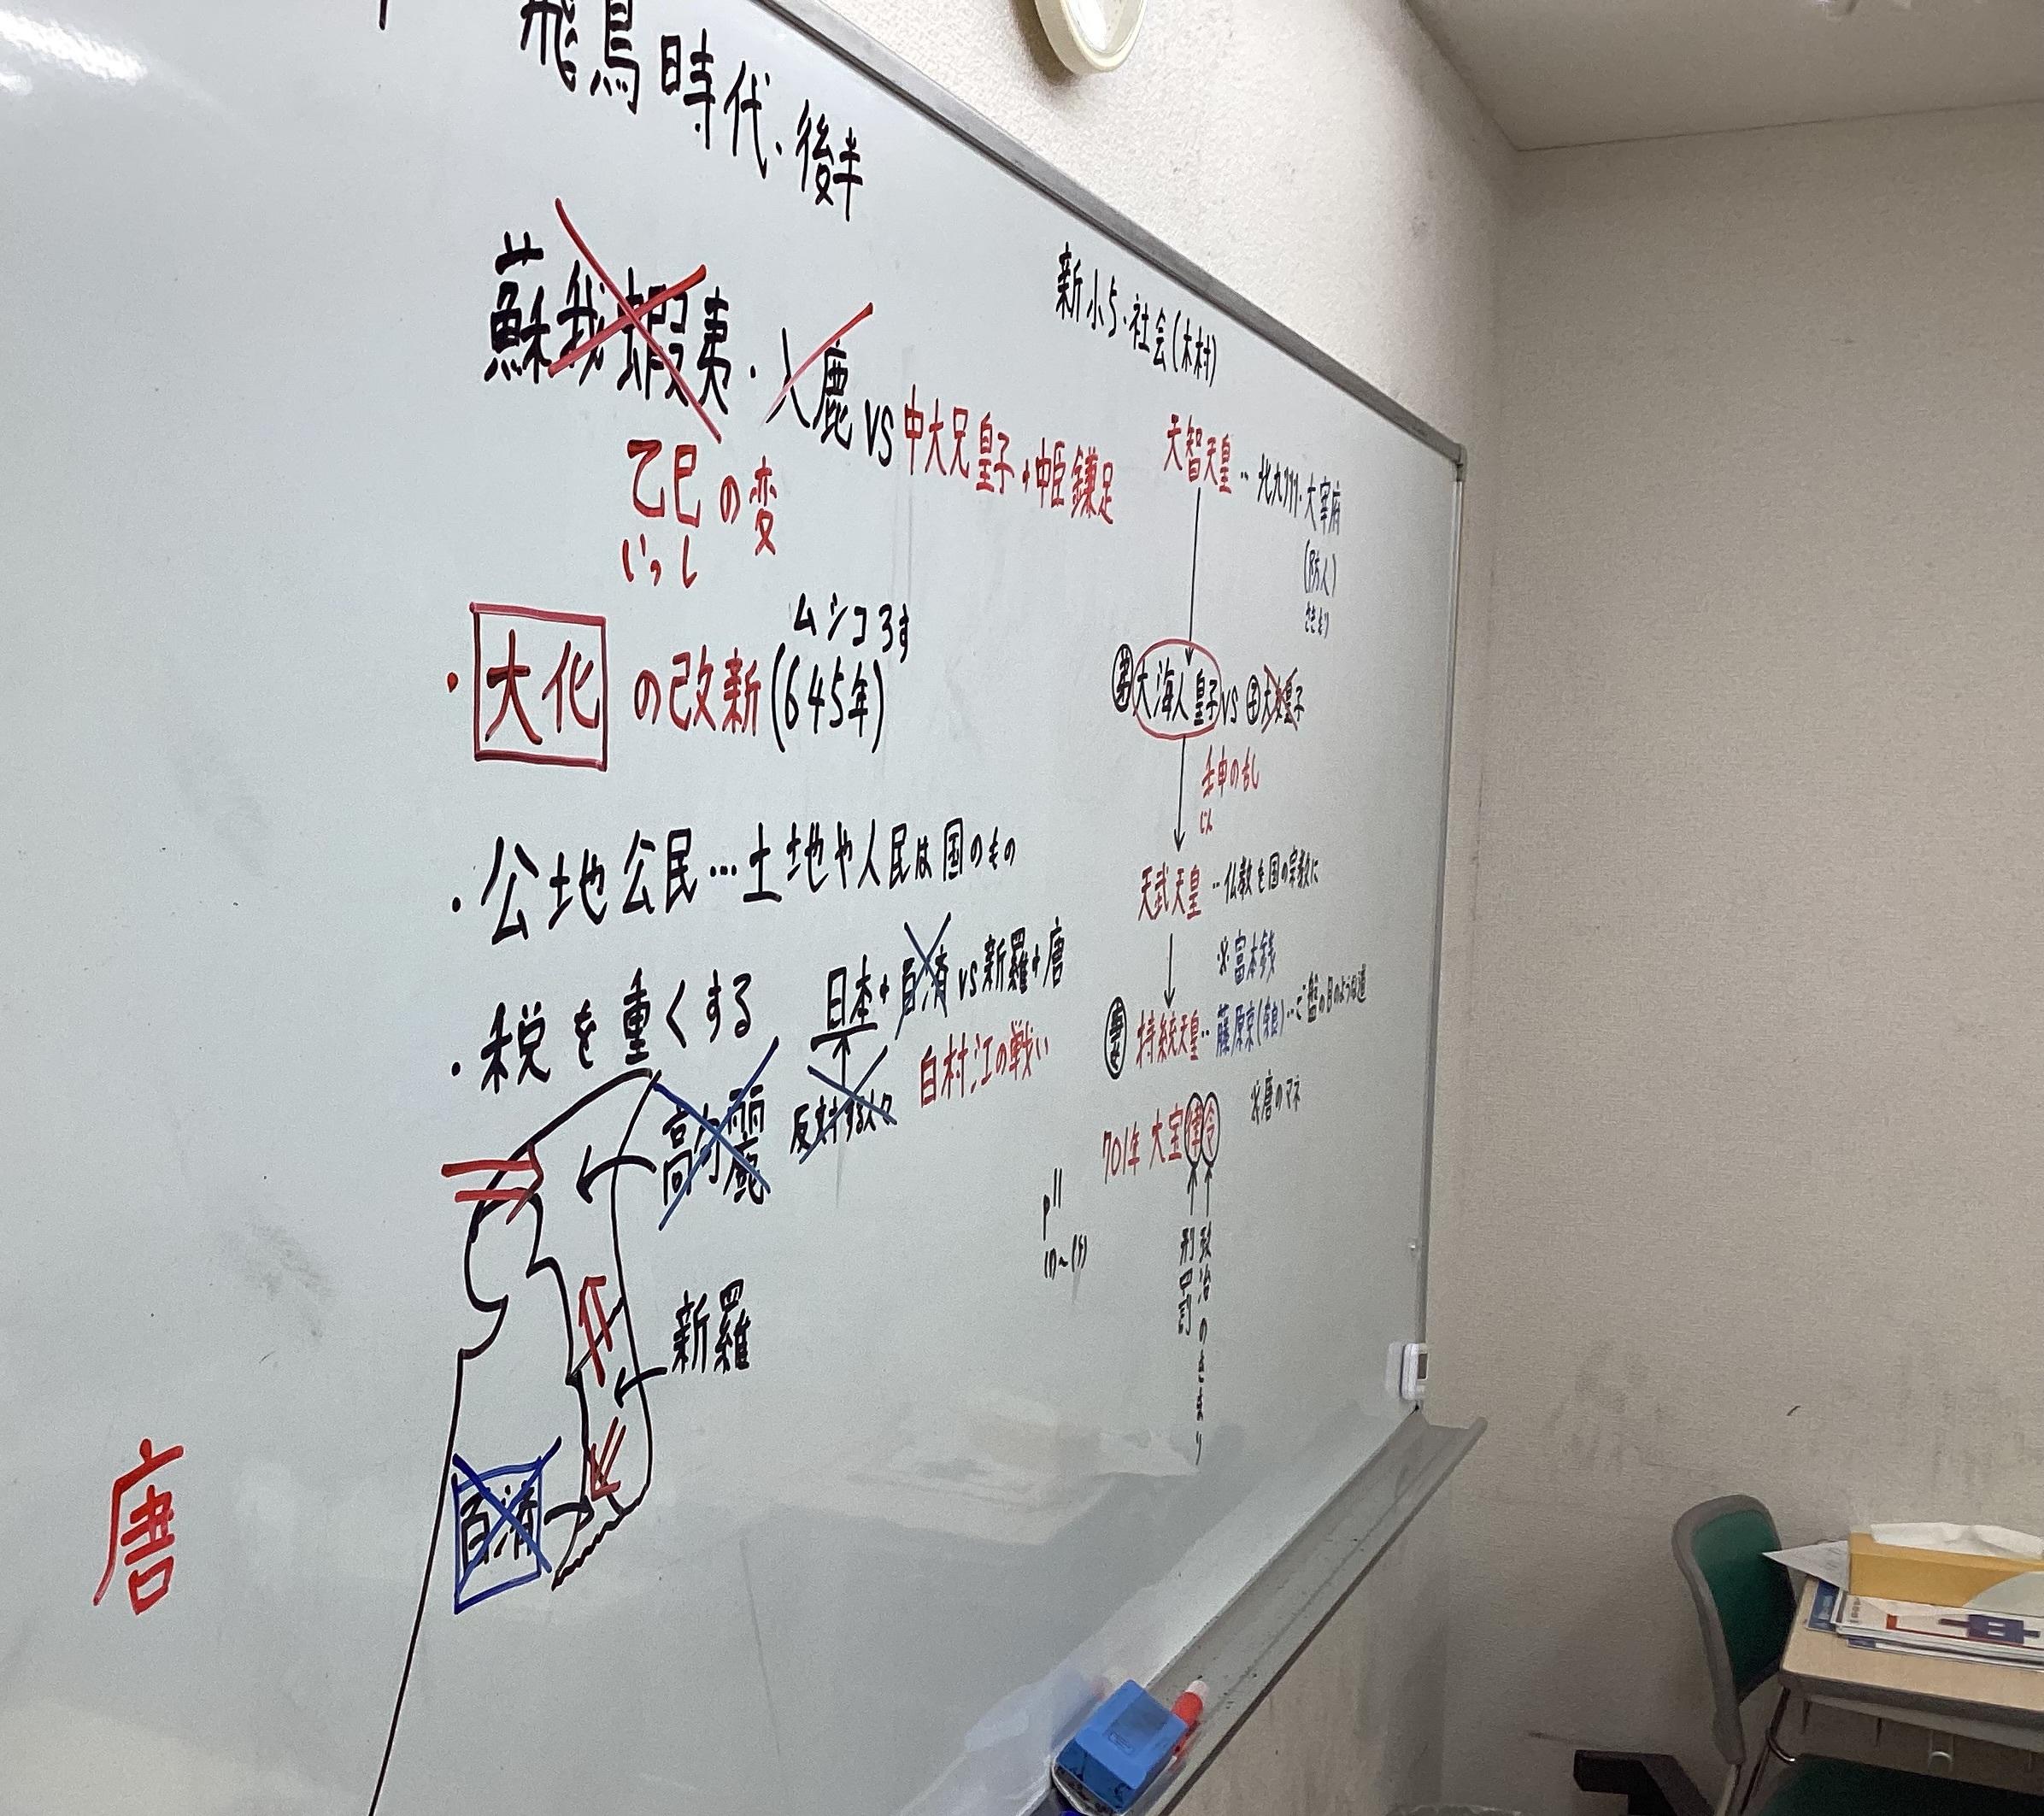 飛鳥時代・後半
蘇我蝦夷・入鹿 VS 中大兄皇子+中臣鎌足
乙巳の変
いっし
ムシコろす
・大化の改新(645年)
・公地公民…土地や人民は国のもの
・税を重くする
日本+百済 vs 新羅+唐
反対する人々
白村江の戦い
高句麗
新羅
百済
唐
新小5・社会(木村)
天智天皇‥北九州・大宰府
(防人)
さきもり
弟 大海人皇子 VS 子 大友皇子
壬申の乱
じん
天武天皇‥仏教を国の宗教に
※富本銭
妻 持統天皇‥藤原京(奈良)…ご盤の目のような道
※唐のマネ
701年 大宝律令
刑罰
政治のきまり
P11